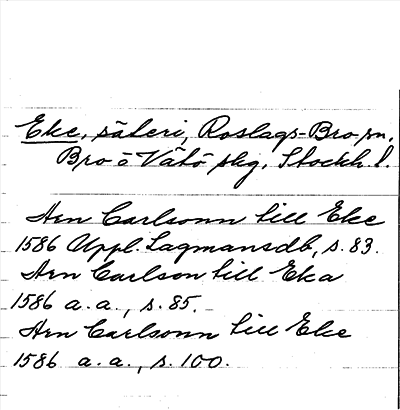 Eke, säteri, Roslags-Bro sn,
Bro o Vätö skg, Stockh. l.
Arn Carlsonn till Eke
1586 Uppl. Lagmansdb, s. 83.
Arn Carlson till Eka
1586 a. a., s. 85.
Arn Carlsonn till Eke
1586 a. a., s. 100.